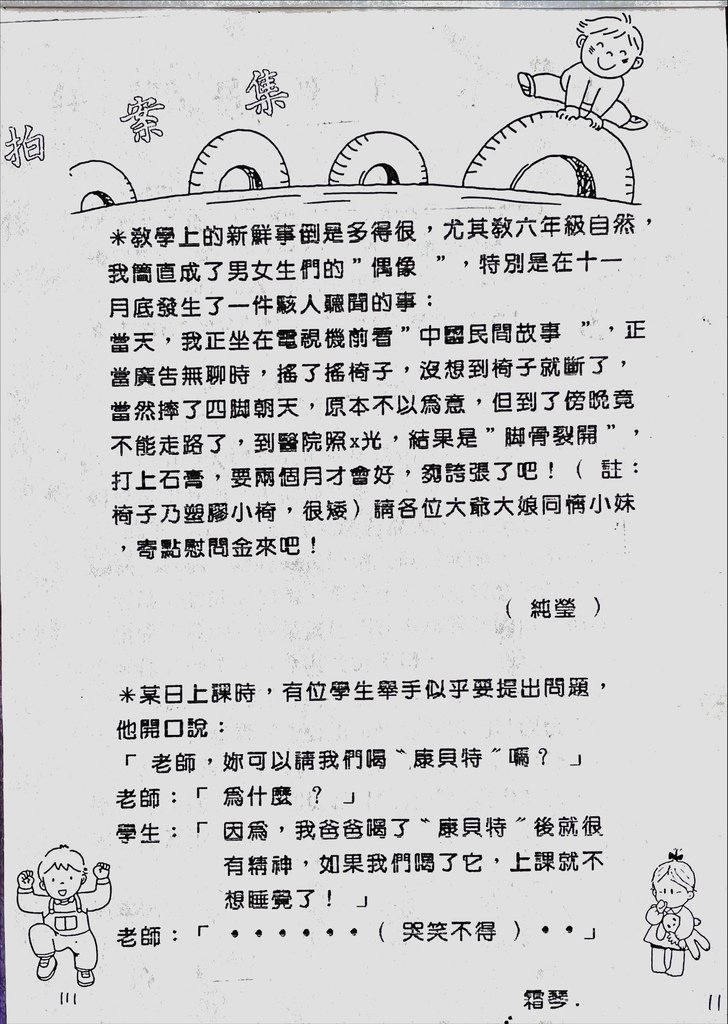 拍案集
＊教學上的新鮮事倒是多得很，尤其教六年級自然，
我簡直成了男女生們的”偶像 ”，特別是在十一
月底發生了一件駭人聽聞的事：
當天，我正坐在電視機前看”中國民間故事 ”，正
當廣告無聊時，搖了搖椅子，沒想到椅子就斷了，
當然摔了四腳朝天，原本不以為意，但到了傍晚竟
不能走路了，到醫院照x光，結果是”腳骨裂開”，
打上石膏，要兩個月才會好，夠誇張了吧！（ 註：
椅子乃塑膠小椅，很矮）請各位大爺大娘同情小妹
，寄點慰問金來吧！
（ 純瑩 ）
＊某日上課時，有位學生舉手似乎要提出問題，
他開口說：
「 老師，妳可以請我們喝〝康貝特〞嗎？ 」
老師：「 為什麼 ？ 」
學生：「 因為，我爸爸喝了〝康貝特〞後就很
有精神，如果我們喝了它，上課就不
想睡覺了！ 」
老師：「 ・・・・・・（ 哭笑不得 ）・・」
霜琴．
11